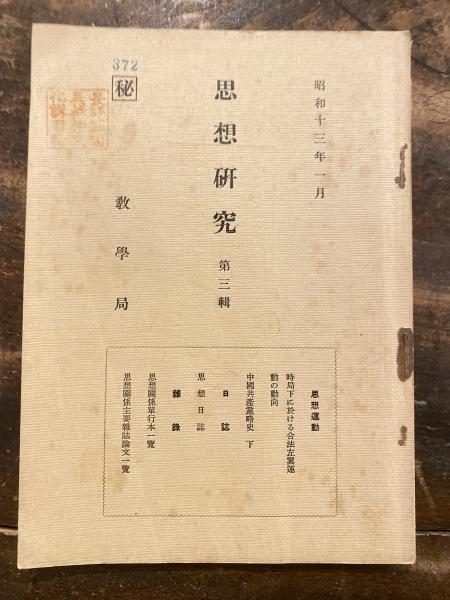 372
昭和十三年一月
思想研究 第三輯
秘
敎學局
思想運動
時局下に於ける合法左翼運
動の動向
中國共產黨略史 下
日誌
思想日誌
雜錄
思想關係單行本一覽
思想關係主要雜誌論文一覽